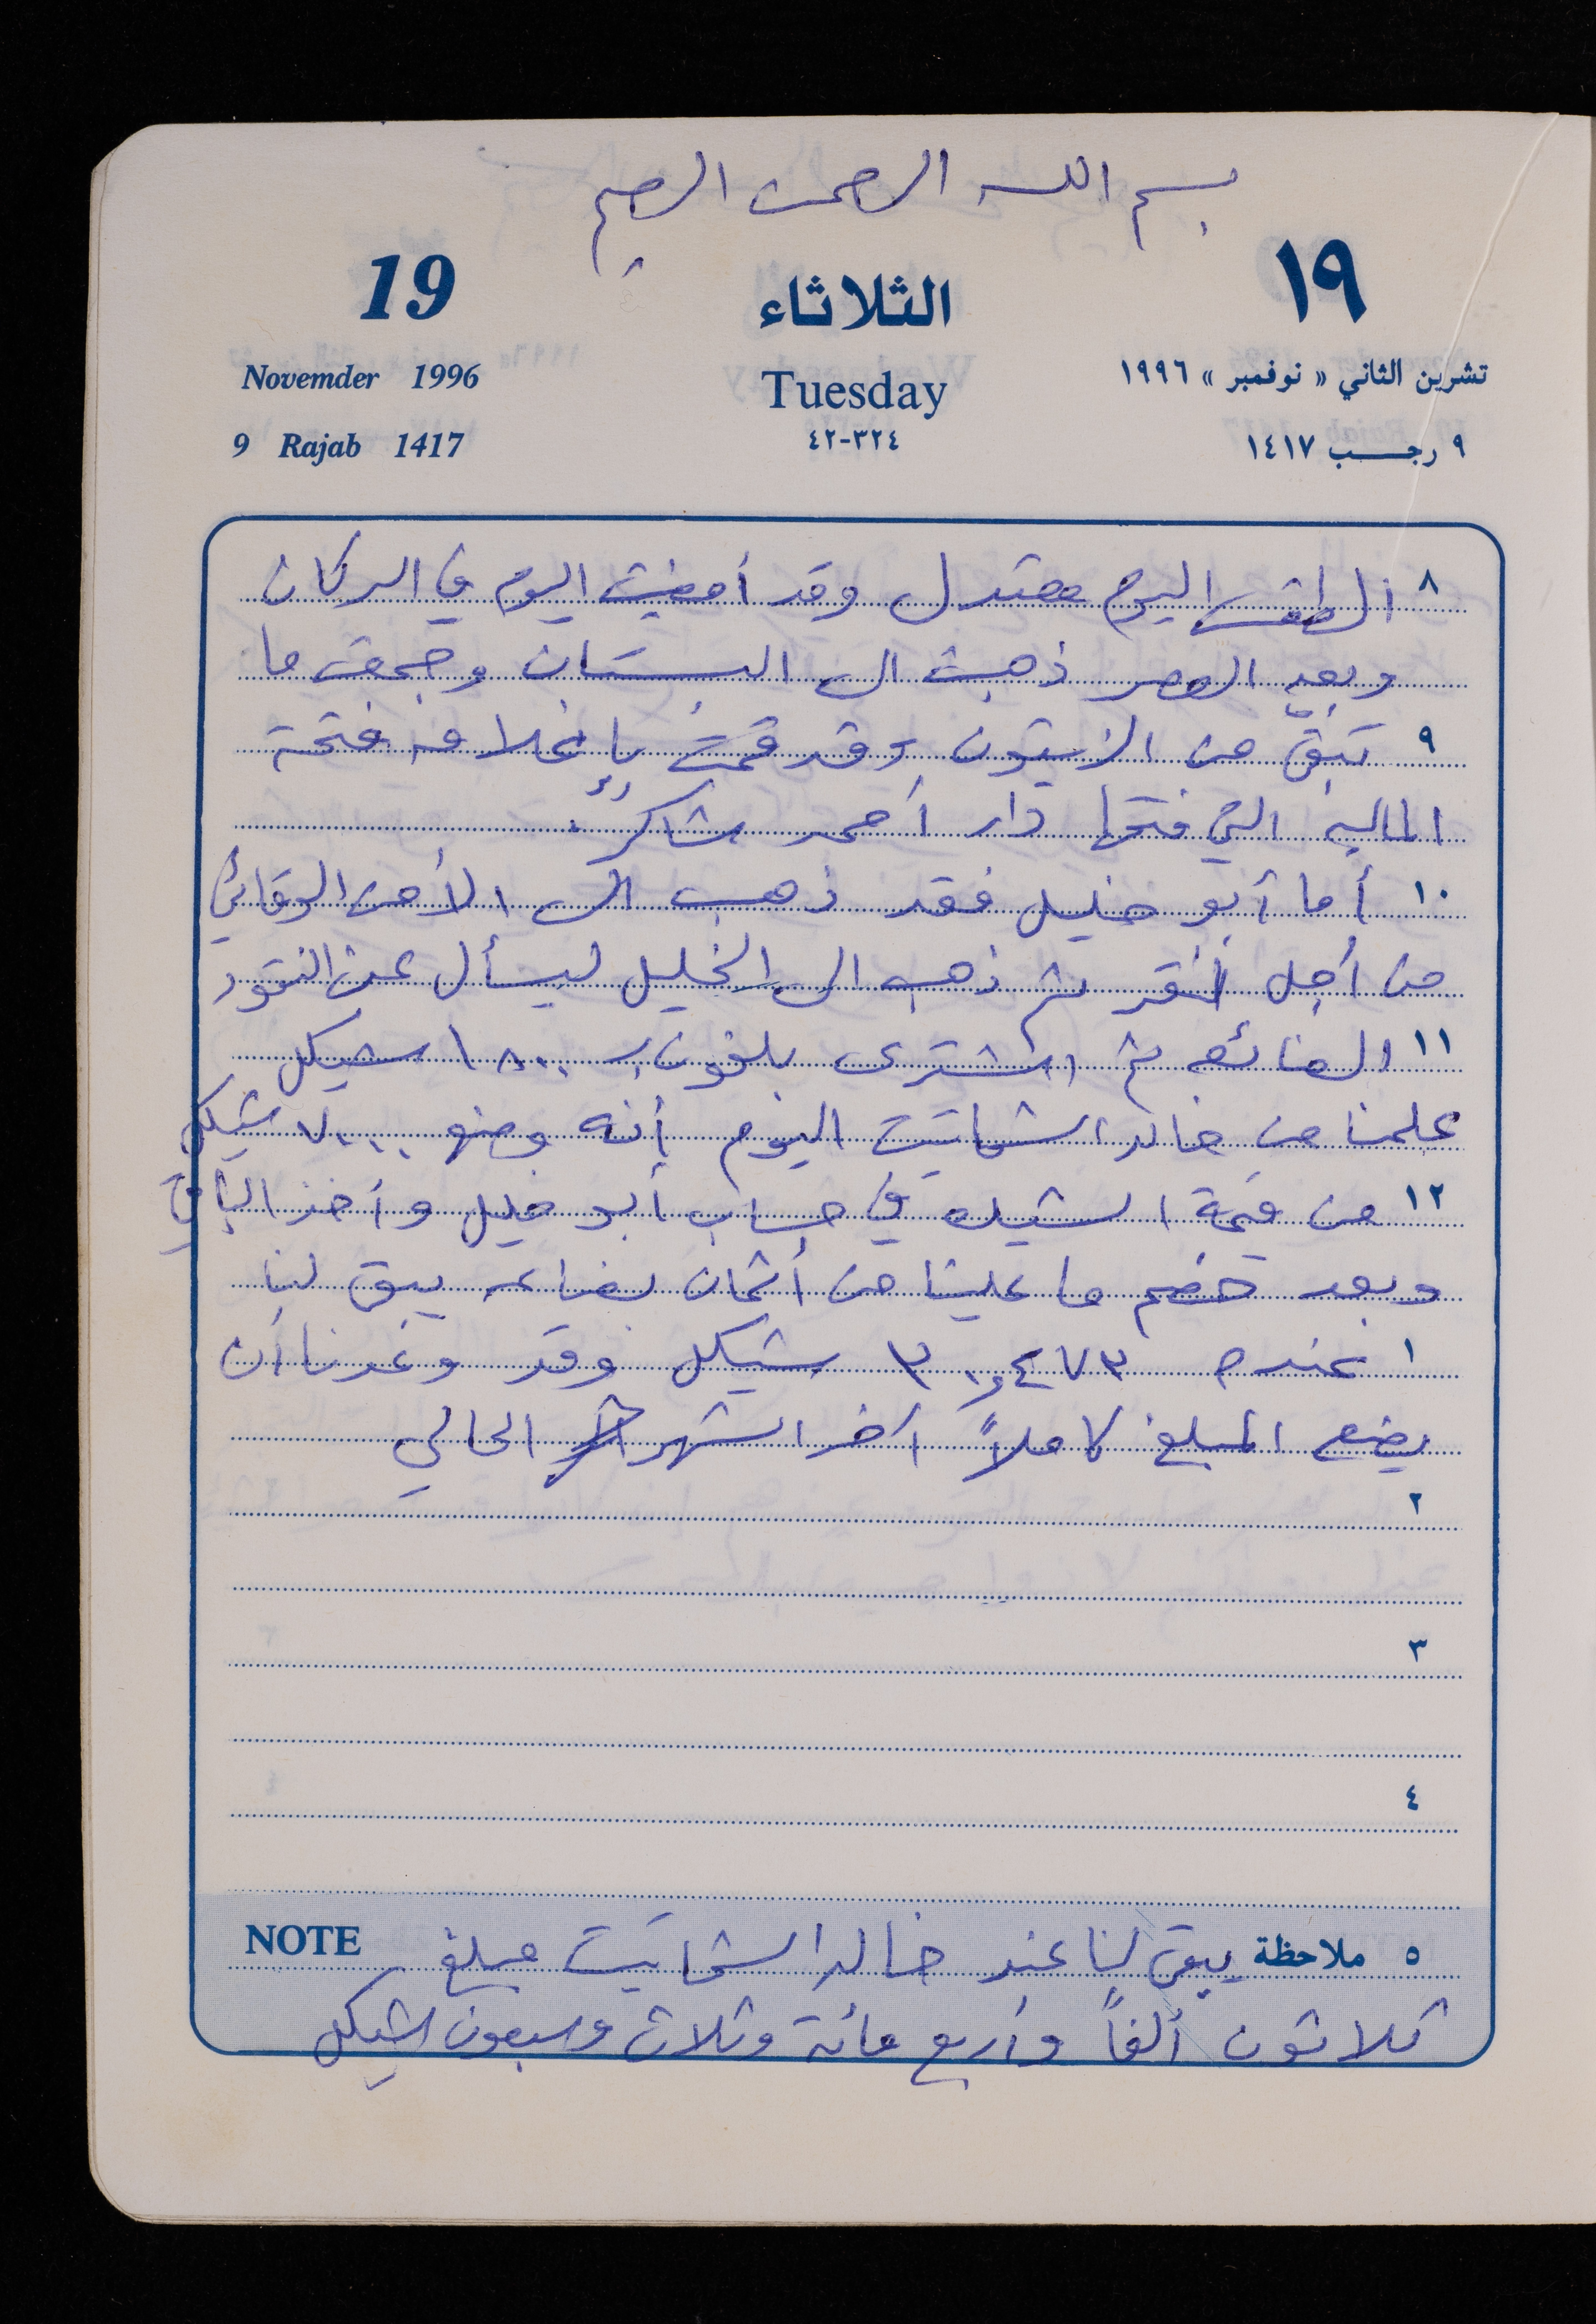 بسم الله الرحمن الرحيم
19 الثلاثاء ١٩
Novemder 1996 Tuesday تشرين الثاني « نوفمبر » ١٩٩٦
9 Rajab 1417 ٣٢٤-٤٢ ٩ رجب ١٤١٧
٨ الطقس اليوم معتدل وقد أمضيت اليوم في الدكان
وبعد العصر ذهبت الى البستان وجمعت ما
٩ تبقّى من الزيتون وقد قمت بإغلاق فتحة
المالية التي فتحها دار أحمد شاكر
١٠ أما أبو خليل فقد ذهب الى الأمن الوقائي
من أجل ثم ذهب الى الخليل ليسأل عن النقود
١١ الضائعة ثم اشترى بلفون بـ ١٨٠٠ شيكل
علمنا من خالد الشماتيت اليوم أنه وضع ٧٠٠٠ شيكل
١٢ من قيمة الشيك في حساب أبو خليل وأخذ الباقي
وبعد خصم ما علينا من أثمان بضاعه يبقى لنا
١ عنده ٣٠,٤٧٣ شيكل وقد وعدنا أن
يضع المبلغ كاملاً آخر الشهر الحالي
٢
٣
٤
٥ ملاحظة يبقى لنا عند خالد الشماتيت مبلغ NOTE
ثلاثون ألفاً وأربع مائة وثلاث وسبعون شيكل